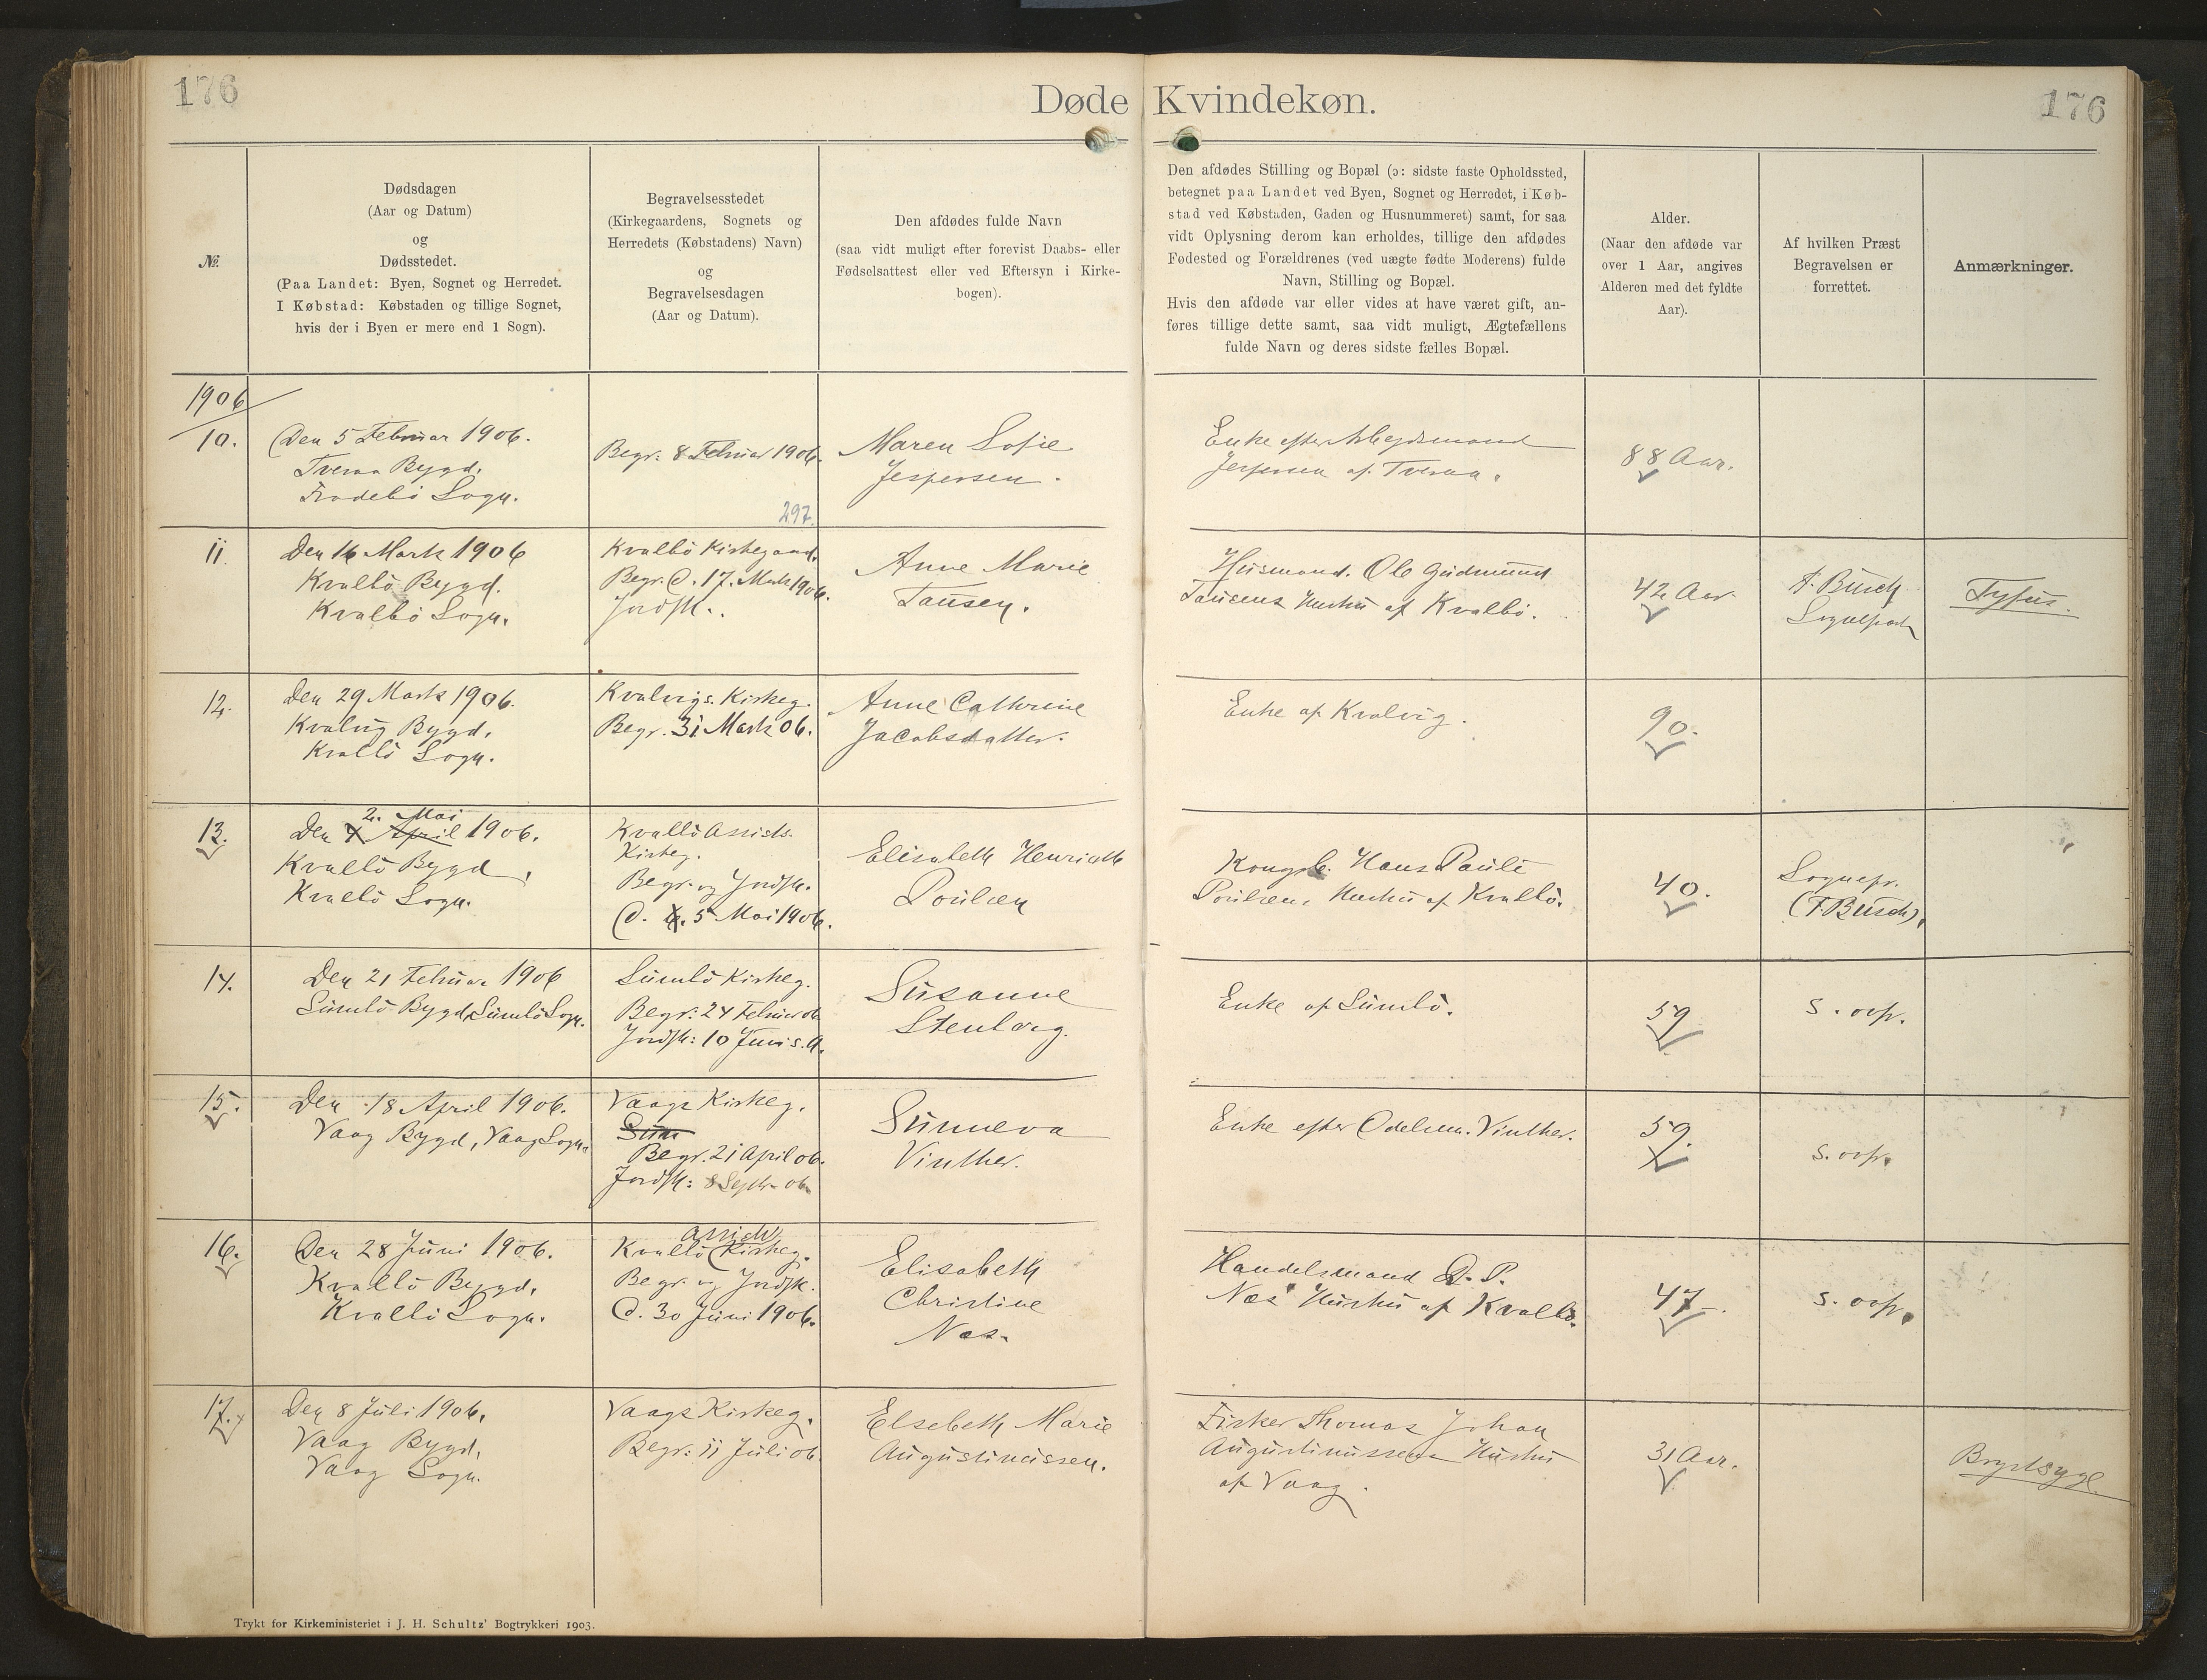 176
Døde Kvindekøn.
176
№
Dødsdagen
(Aar og Datum)
og
Dødsstedet.
(Paa Landet: Byen, Sognet og Herredet.
I Købstad: Købstaden og tillige Sognet,
hvis der i Byen er mere end 1 Sogn).
Begravelsesstedet
(Kirkegaardens, Sognets og
Herredets (Købstadens) Navn)
og
Begravelsesdagen
(Aar og Datum).
Den afdødes fulde Navn
(saa vidt muligt efter forevist Daabs- eller
Fødselsattest eller ved Eftersyn i Kirke-
bogen).
Den afdødes Stilling og Bopæl (ɔ: sidste faste Opholdssted,
betegnet paa Landet ved Byen, Sognet og Herredet, i Køb-
stad ved Købstaden, Gaden og Husnummeret) samt, for saa
vidt Oplysning derom kan erholdes, tillige den afdødes
Fødested og Forældrenes (ved uægte fødte Moderens) fulde
Navn, Stilling og Bopæl.
Hvis den afdøde var eller vides at have været gift, an-
føres tillige dette samt, saa vidt muligt, Ægtefællens
fulde Navn og deres sidste fælles Bopæl.
Alder.
(Naar den afdøde var
over 1 Aar, angives
Alderen med det fyldte
Aar).
Af hvilken Præst
Begravelsen er
forrettet.
Anmærkninger.
1906
10.
Den 5 Februar 1906.
Tveraa Bygd.
Frodebö Sogn.
Begr: 8 Februar 1906.
297.
Maren Sofie
Jespersen.
Enke efter Arbejdsmand
Jespersen af Tveraa.
88 Aar.
11.
Den 16 Marts 1906
Kvalbö Bygd.
Kvalbö Sogn.
Kvalbö Kirkegaard.
Begr. d. 17. Marts 1906.
Jordfk..
Anne Marie
Tausen.
Husmand. Ole Gudmund
Tausens Hustru af Kvalbö.
42 Aar.
F. Busch
Sognepræst
Tyfus.
12.
Den 29 Marts 1906.
Kvalvig Bygd.
Kvalbö Sogn.
Kvalvigs. Kirkeg.
Begr. 31 Marts 06.
Anne Cathrine
Jacobsdatter.
Enke af Kvalvig.
90.
13.
2. Mai
Den April 1906.
Kvalbö Bygd,
Kvalbö Sogn.
Kvalbö Assists.
Kirkeg.
Begr. og Jordfk.
d. 5 Mai 1906.
Elisabeth Henriette
Poulsen
Kongsb. Hans Pauli
Poulsens Hustru af Kvalbö.
40.
Sognepr.
(F. Busch).
"
14.
Den 21 Februar 1906
Sumbö Bygd, Sumbö Sogn.
Sumbö Kirkeg.
Begr: 24 Februar 06
Jordfk: 10 Juni s. A.
Susanne
Stenberg.
Enke af Sumbö.
59
s. ovfr.
15.
Den 18 April 1906.
Vaag Bygd, Vaag Sogn.
Vaags Kirkeg.
Sum
Begr. 21 April 06.
Jordfk: 8 Septr. 06
Sunneva
Vinther.
Enke efter Odelsm. Vinther.
59.
s. ovfr.
16.
Den 28 Juni 1906.
Kvalbö Bygd,
Kvalbö Sogn.
Assists
Kvalbö Kirkeg.
Begr. og Jordfk.
d. 30 Juni 1906.
Elisabeth
Christine
Næs.
Handelsmand D. P.
Næs' Hustru af Kvalbö.
47.
s. ovfr.
17.
Den 8 Juli 1906.
Vaag Bygd,
Vaag Sogn.
Vaags Kirkeg.
Begr: 11 Juli 06
Elsebeth Marie
Augustinussen.
Fisker Thomas Johan
Augustinussens Hustru
af Vaag.
31 Aar.
Brystsyge.
Trykt for Kirkeministeriet i J. H. Schultz' Bogtrykkeri 1903.